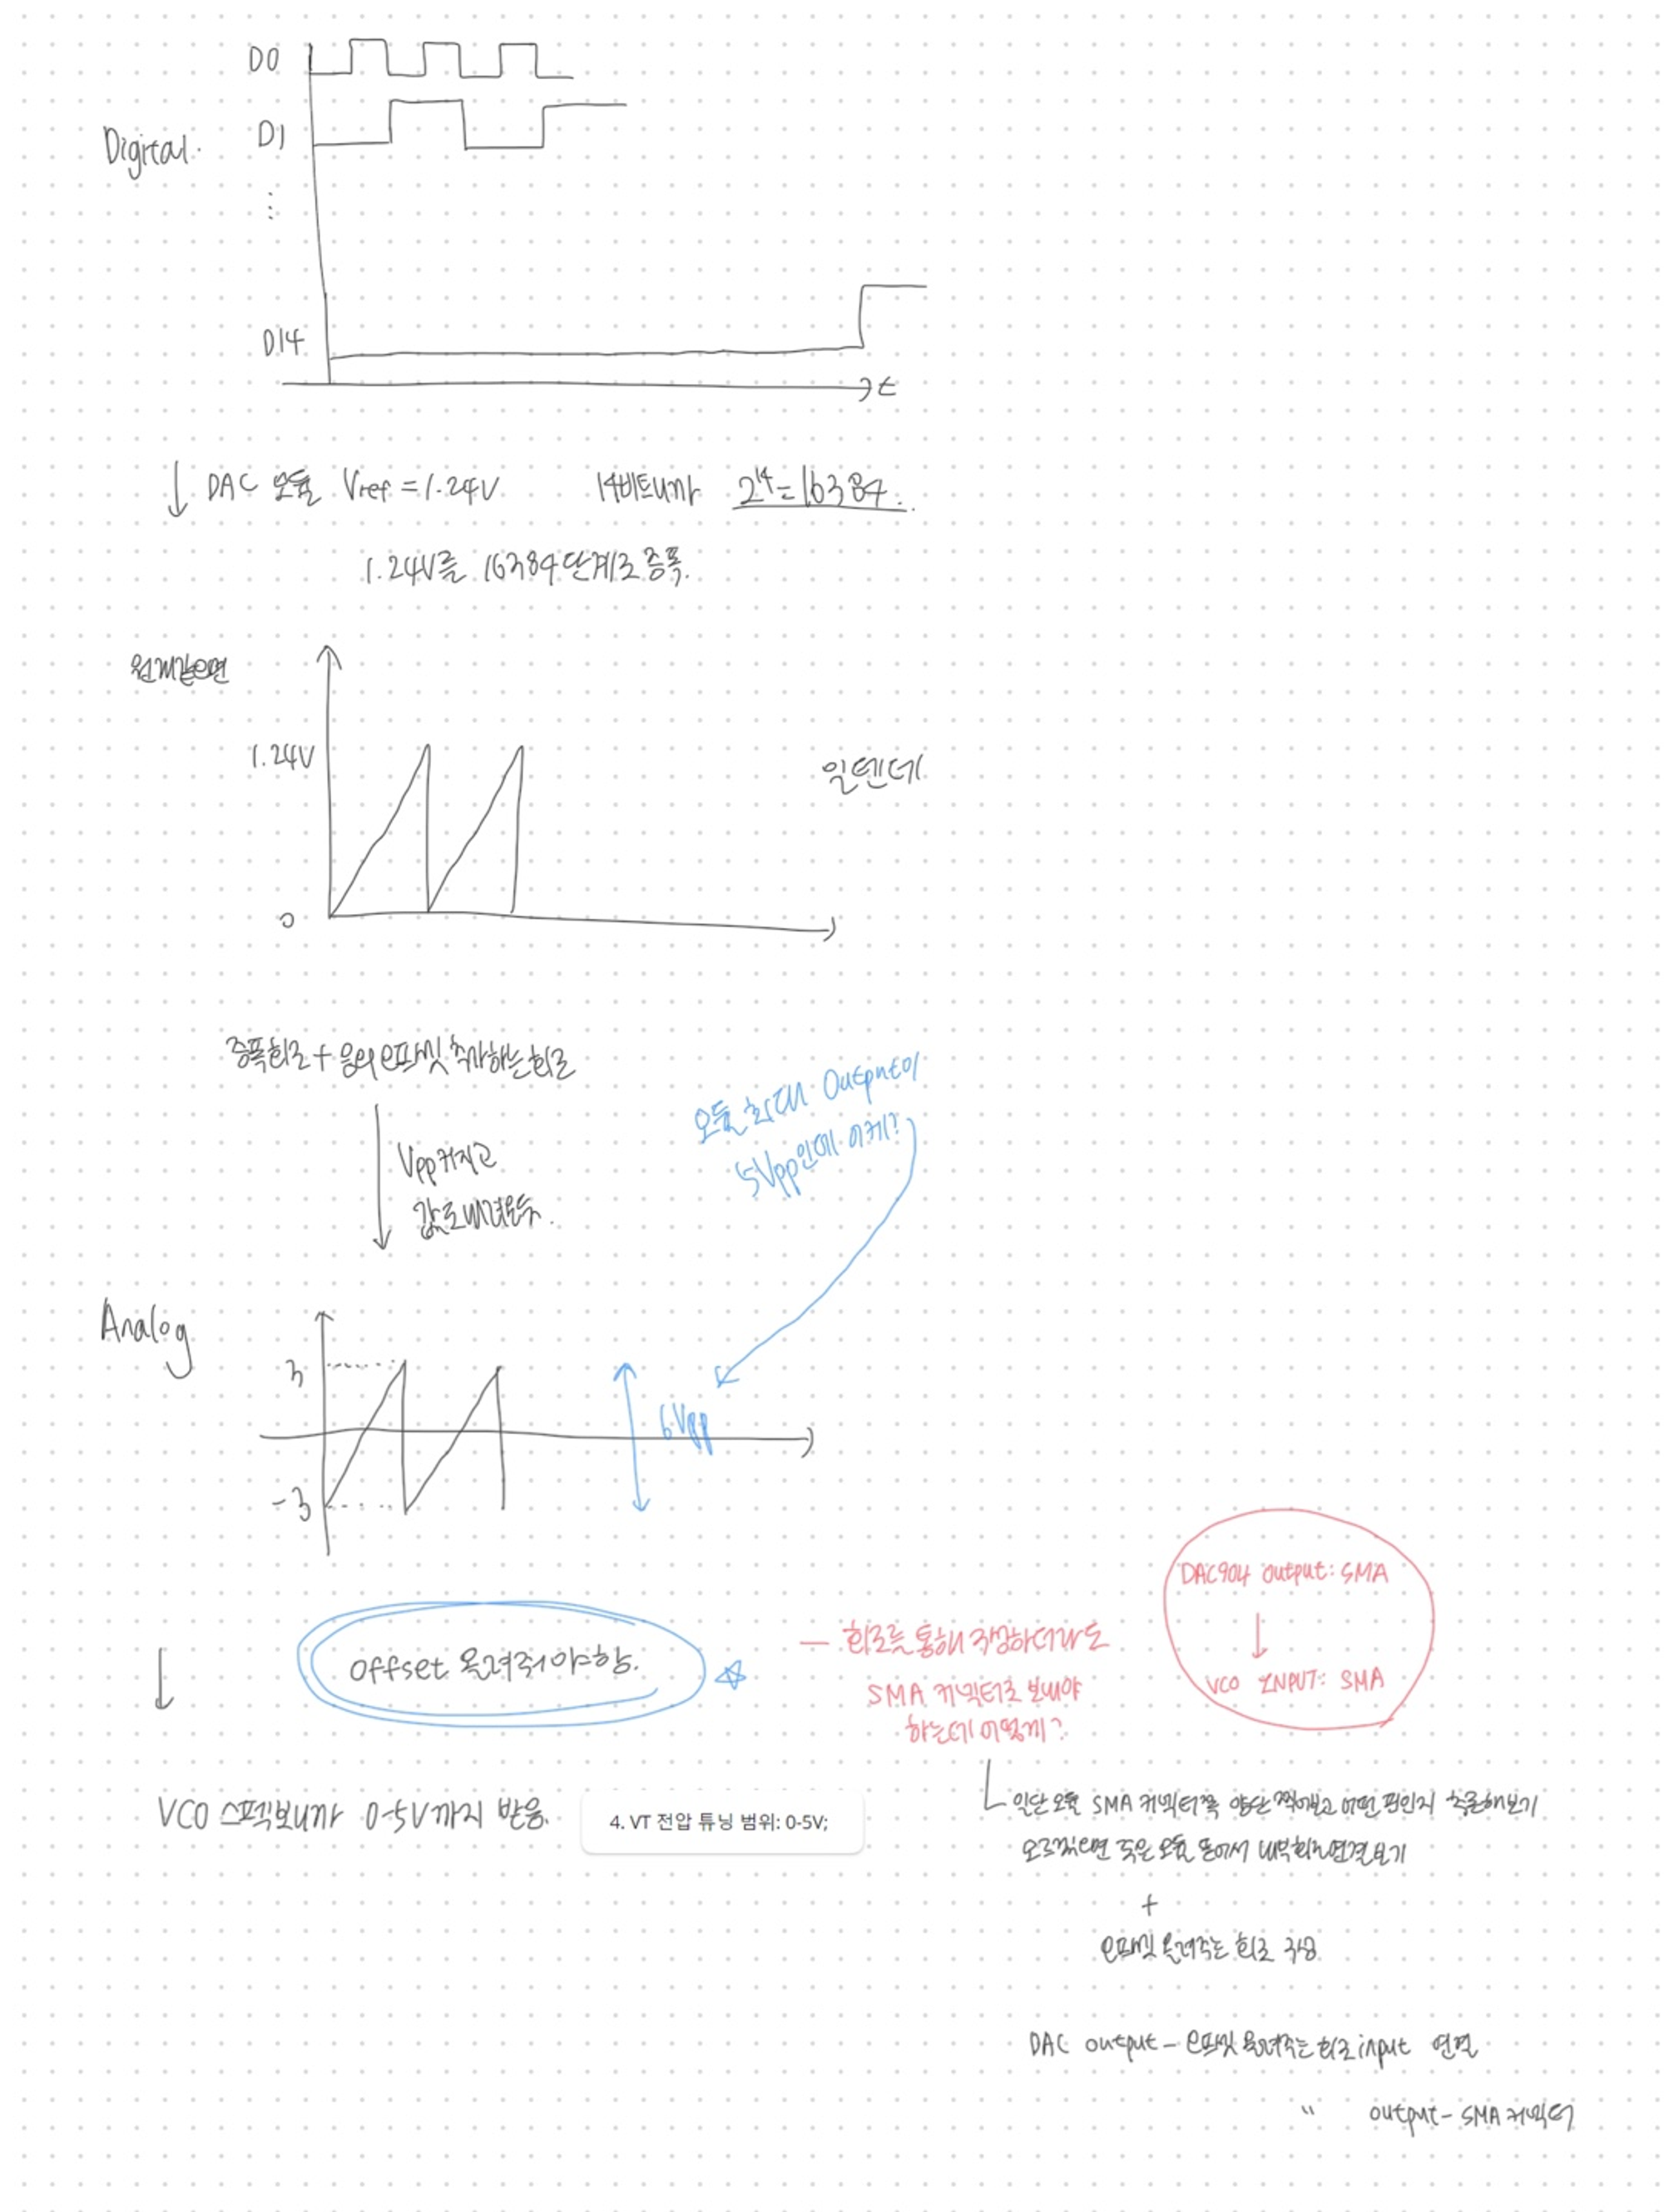 D0
Digital.
D1
⋮
D14
t
↓ DAC 모듈 Vref = 1.24V 14비트니까 2^14 = 16384.
1.24V를 16384단계로 증폭.
원래같으면
1.24V
일텐데
0
증폭회로 + 음의 오프셋 추가하는 회로
모듈 최대 Output이
5Vpp인데 이게?
Vpp커지고
값도내려온듯.
Analog
3
6Vpp
-3
DAC904 output: SMA
↓
VCO INPUT: SMA
offset 올려줘야함.
— 회로를 통해 구성하더라도
SMA 커넥터로 보내야
하는데 어떻게?
VCO 스펙보니까 0-5V까지 받음.
4. VT 전압 튜닝 범위: 0-5V;
일단 모듈 SMA 커넥터쪽 양단 찍어보고 어떤 핀인지 추론해보기
모르겠으면 죽은 모듈 뜯어서 내부회로연결보기
+
오프셋 올려주는 회로 구성
DAC output - 오프셋 올려주는 회로 input 연결
" output - SMA 커넥터